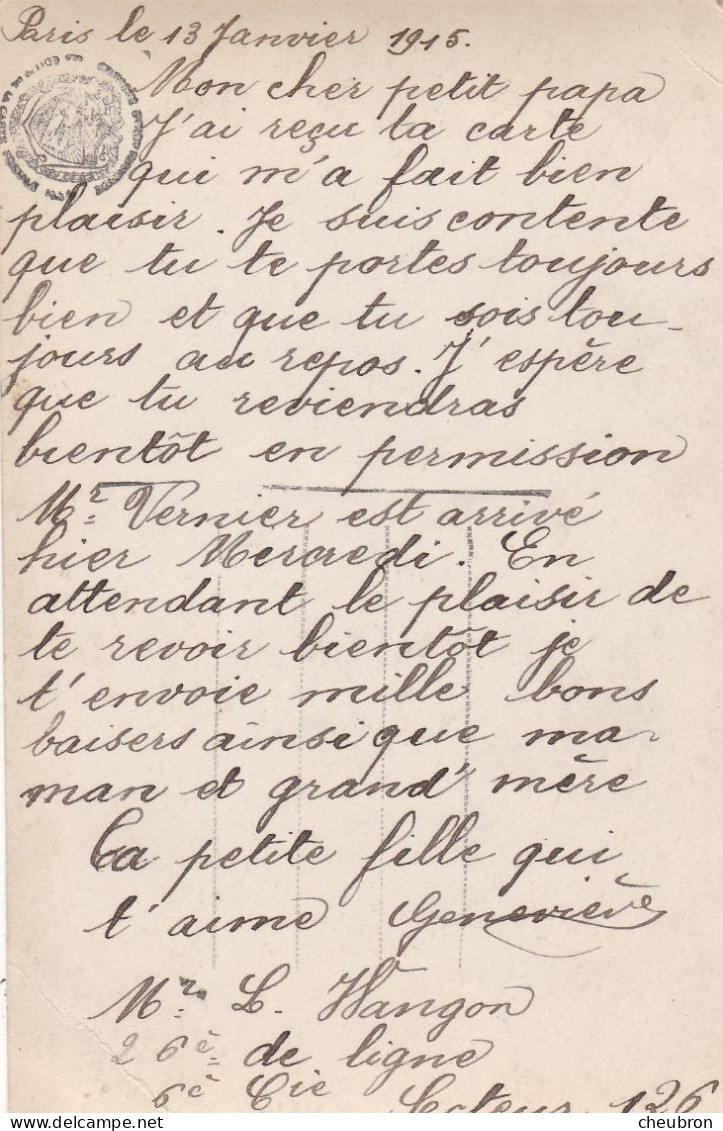 Paris le 13 Janvier 1915.
Mon cher petit papa
J'ai reçu ta carte
qui m'a fait bien
plaisir. Je suis contente
que tu te portes toujours
bien et que tu sois tou-
jours au repos. J'espère
que tu reviendras
bientôt en permission
Mr Vernier est arrivé
hier Mercredi. En
attendant le plaisir de
te revoir bientôt je
t'envoie mille bons
baisers ainsi que ma-
man et grand'mère
Ta petite fille qui
t'aime Geneviève
Mr. L. Wangon
26è de ligne
6è Cie Secteur 126
cheubron